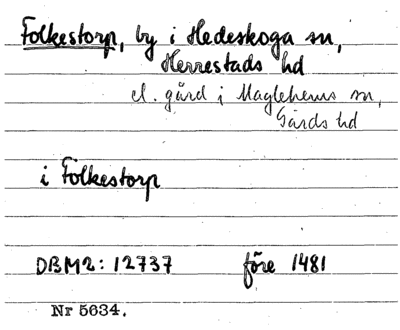 Folkestorp, by i Hedeskoga sn,
Herrestads hd
el. gård i Maglehems sn,
Gärds hd
i Folkestorp
DBM2: 12737 före 1481
Nr 5634.